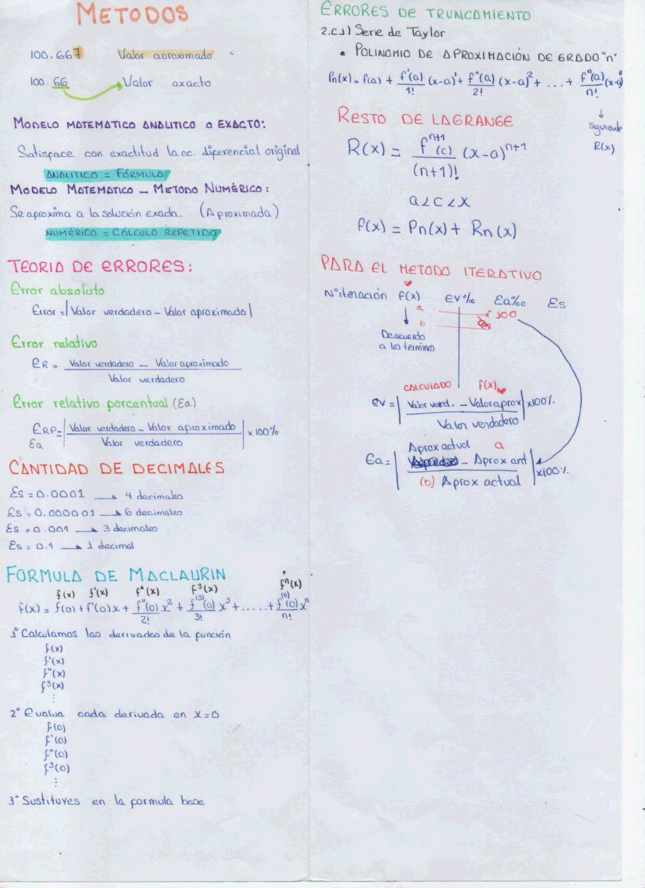 METODOS
100.667 Valor aproximado
100.66 Valor exacto
MODELO MATEMATICO ANALITICO o EXACTO:
Satisface con exactitud la ec. diferencial original
ANALITICO = FÓRMULA
MODELO MATEMATICO - METODO NUMÉRICO:
Se aproxima a la solución exada. (Aproximada)
NUMÉRICO = CÁLCULO REPETIDO
TEORIA DE ERRORES:
Error absoluto
Error = |Valor verdadero - Valor aproximado|
Error relativo
eR = (Valor verdadero - Valor aproximado) / Valor verdadero
Error relativo porcentual (Ea)
ERP = |(Valor verdadero - Valor aproximado) / Valor verdadero| x 100%
Ea
CANTIDAD DE DECIMALES
Es = 0.0001 → 4 decimales
Es = 0.000001 → 6 decimales
Es = 0.001 → 3 decimales
Es = 0.1 → 1 decimal
FORMULA DE MACLAURIN
f(x) f'(x) f"(x) f³(x) fⁿ(x)
f(x) = f(0) + f'(0)x + f"(0)/2! x² + f⁽³⁾(0)/3! x³ + ..... + f⁽ⁿ⁾(0)/n! xⁿ
1° Calculamos las derivadas de la función
f(x)
f'(x)
f"(x)
f³(x)
⋮
2° Evalua cada derivada en x=0
f(0)
f'(0)
f"(0)
f³(0)
⋮
3° Sustituyes en la formula base
ERRORES DE TRUNCAMIENTO
2.c.1) Serie de Taylor
• POLINOMIO DE APROXIMACIÓN DE GRADO "n"
Pn(x) = f(a) + f'(a)/1! (x-a)¹ + f"(a)/2! (x-a)² + ... + fⁿ(a)/n! (x-a)ⁿ
↓
Siguiente
R(x)
RESTO DE LAGRANGE
R(x) = fⁿ⁺¹(c)/(n+1)! (x-a)ⁿ⁺¹
a<c<x
f(x) = Pn(x) + Rn(x)
PARA EL METODO ITERATIVO
N° iteración f(x) EV% Ea% Es
a 100
b
↓
De acuerdo
a los terminos
CALCULADO f(x)
eV = |(Valor verd. - Valor aprox) / Valor verdadero| x100%
Aprox actual a
Ea = |(Aprox actual - Aprox ant) / Aprox actual| x100%
(b)